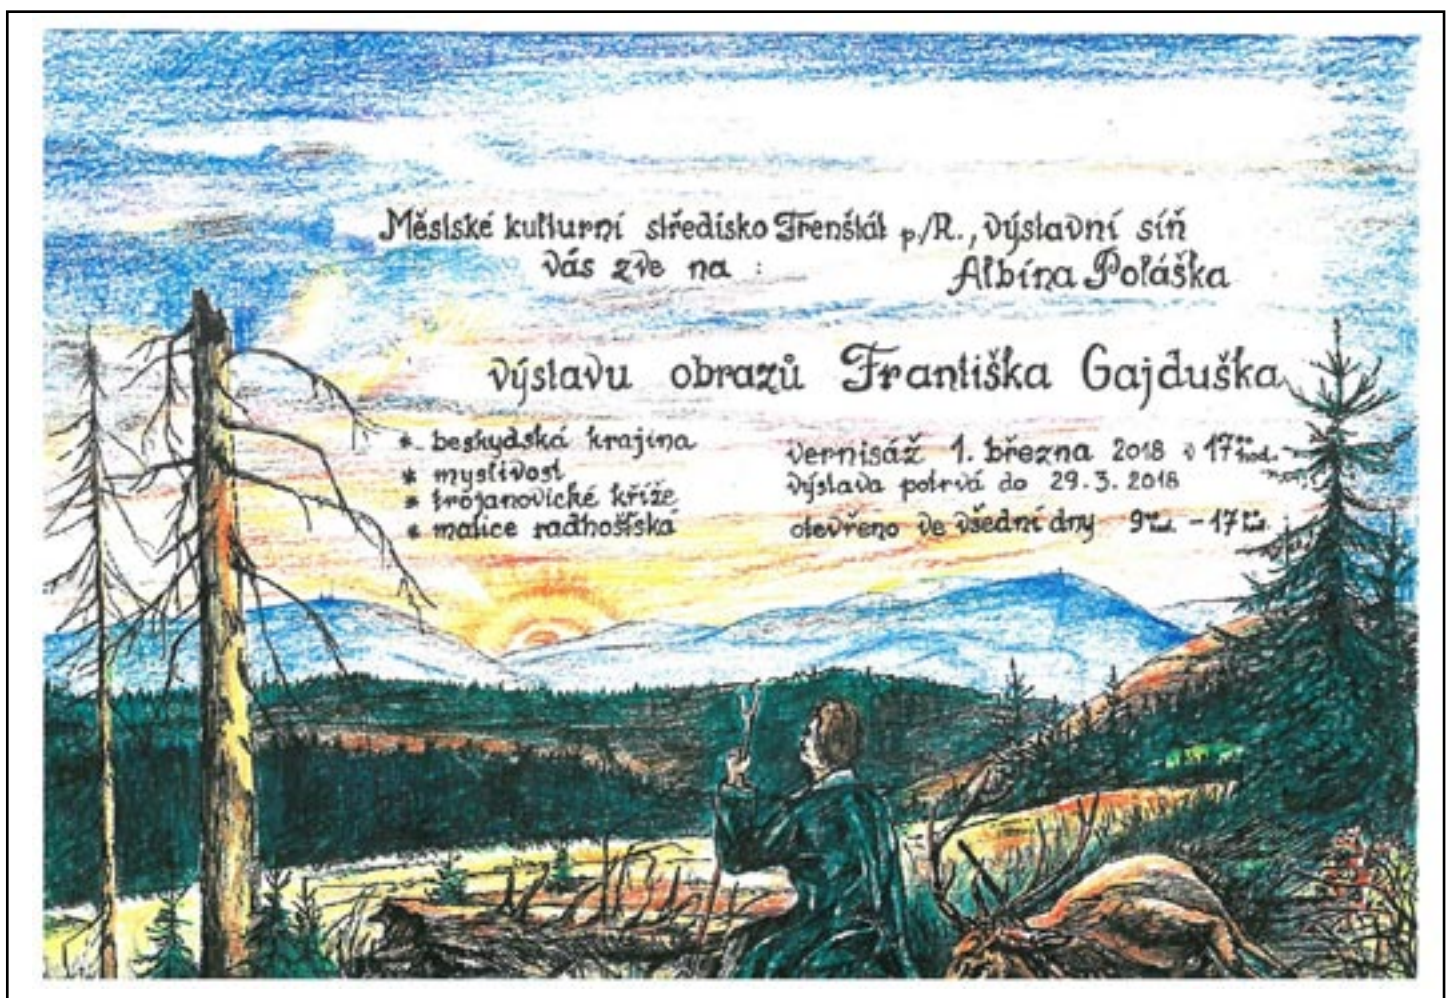 Městské kulturní středisko Frenštát p/R., výstavní síň
vás zve na : Albína Poláška
výstavu obrazů Františka Gajduška
* beskydská krajina
* myslivost
* trojanovické kříže
* matice radhošťská
vernisáž 1. března 2018 v 17 hod.
výstava potrvá do 29.3.2018
otevřeno ve všední dny 9 - 17